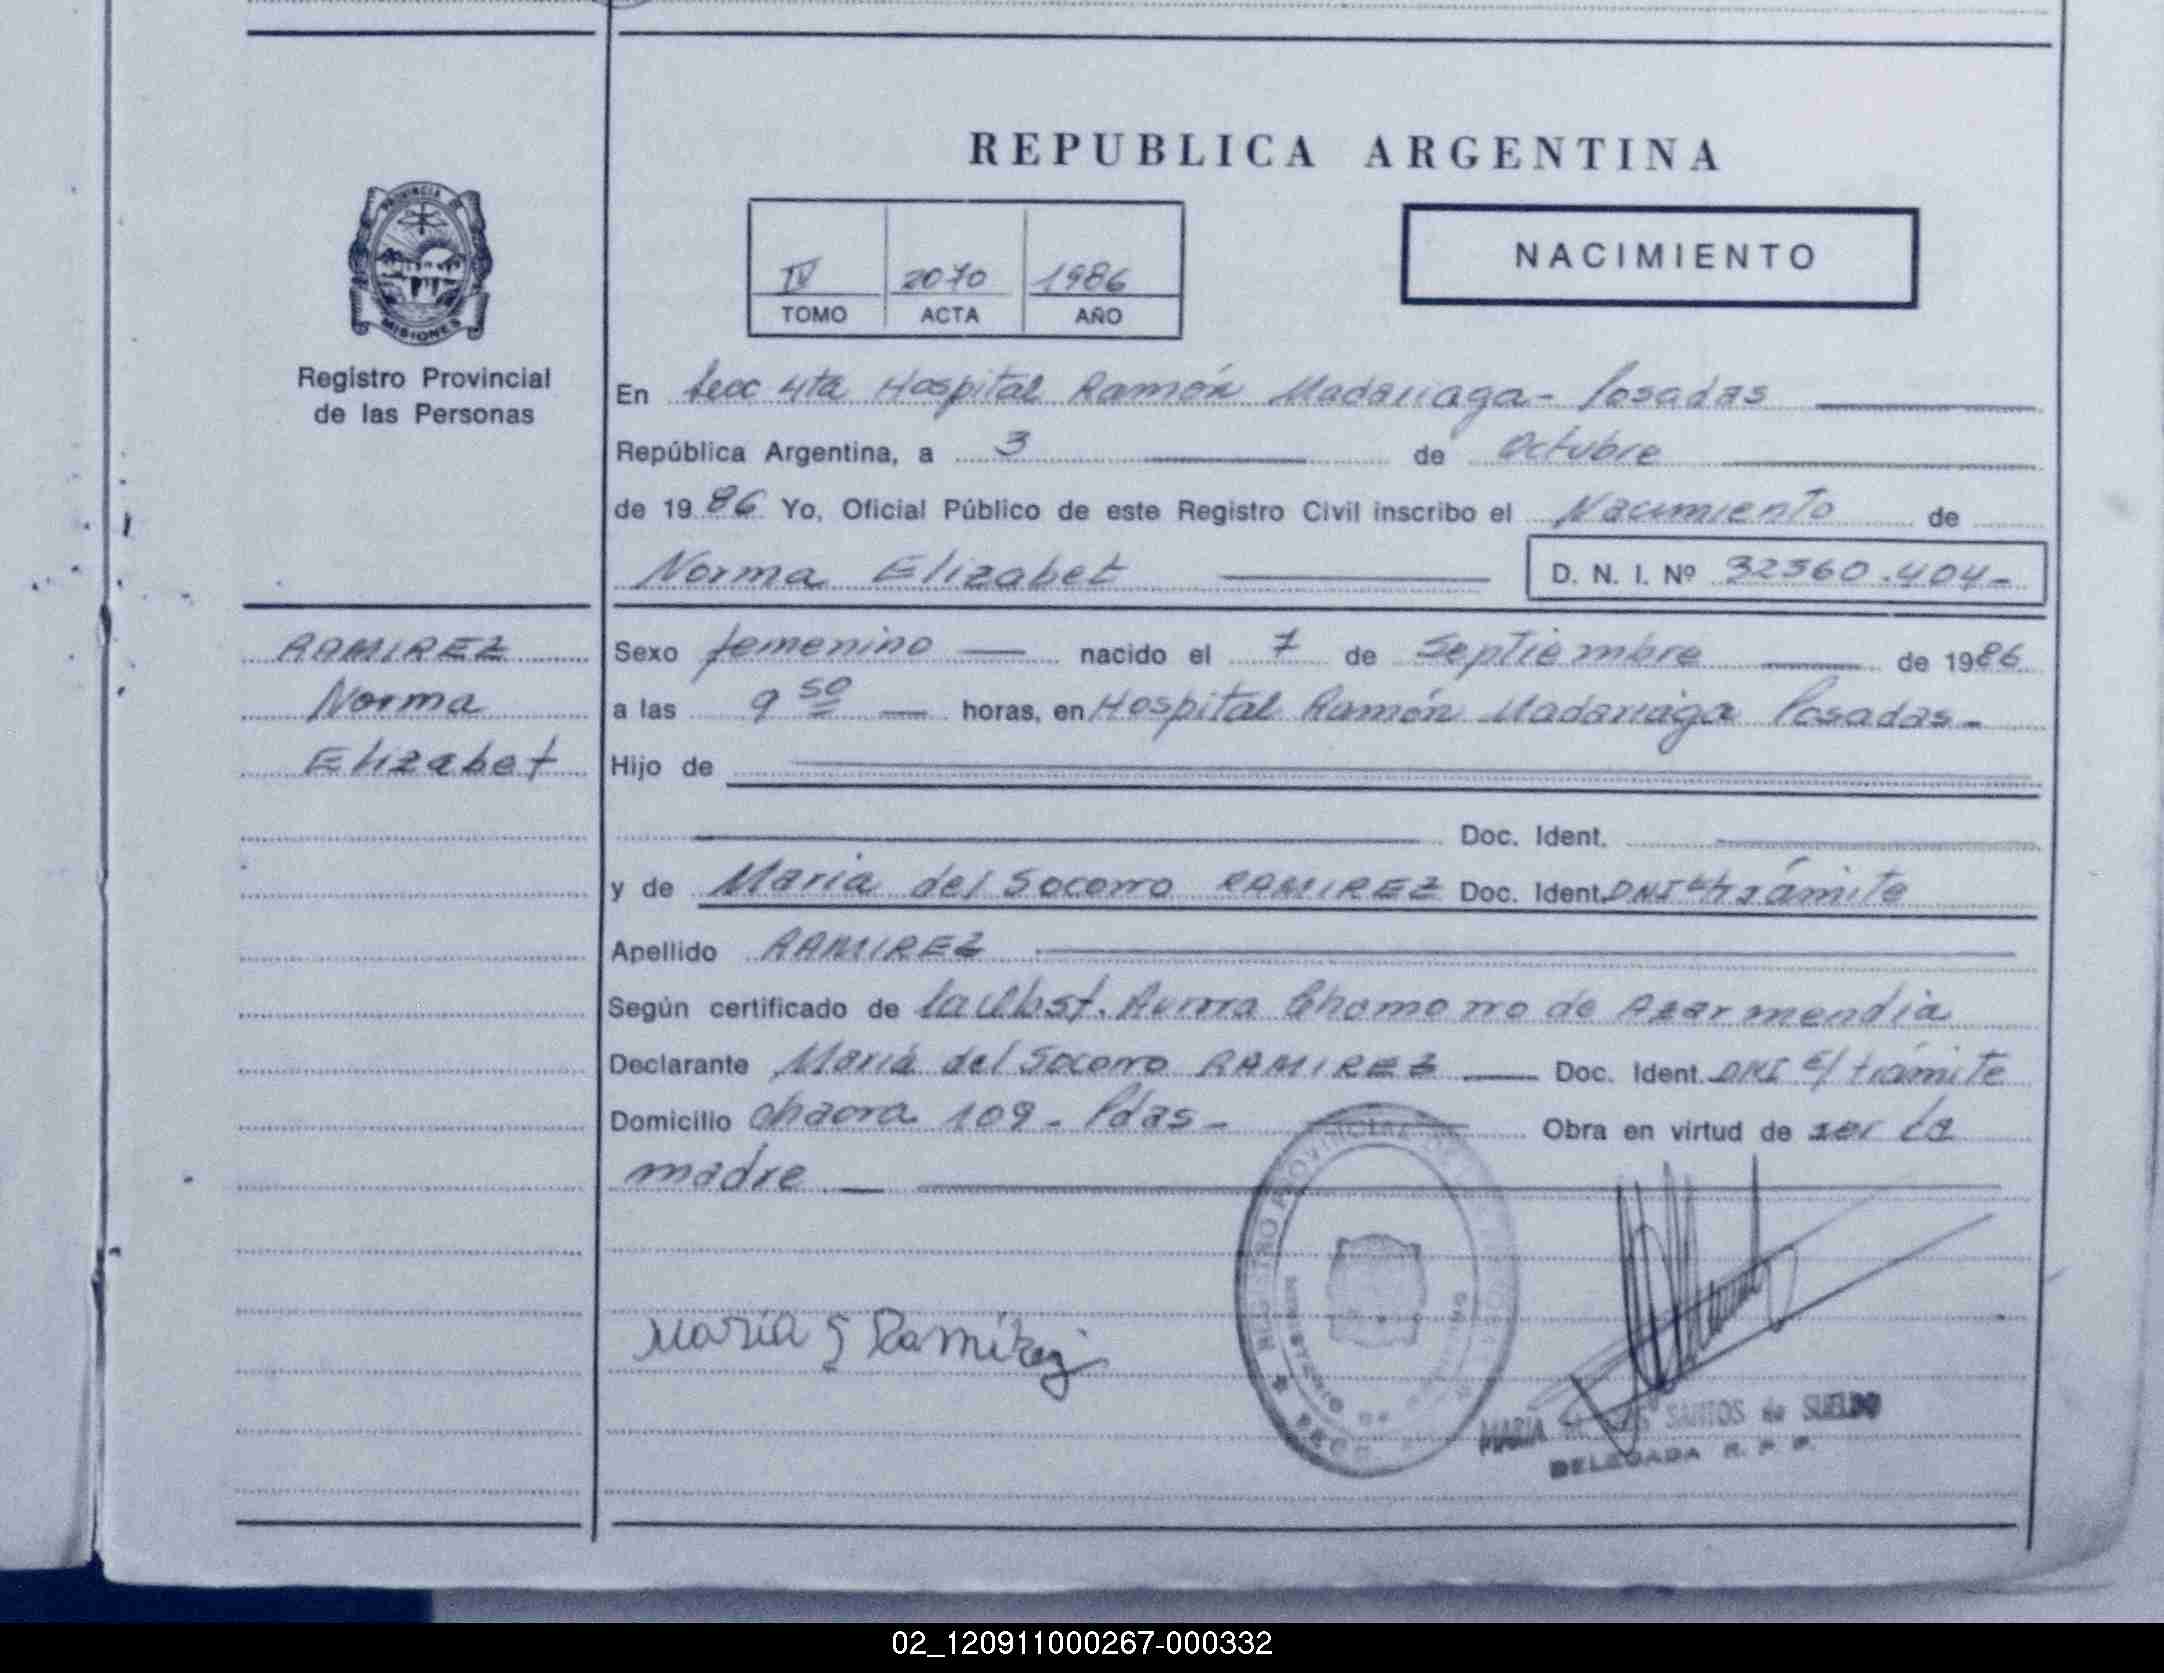 REPUBLICA ARGENTINA
PROVINCIA DE
MISIONES
Registro Provincial
de las Personas
IV 2070 1986
TOMO ACTA AÑO
NACIMIENTO
En Secc 4ta Hospital Ramón Madariaga - Posadas
República Argentina, a 3 de Octubre
de 1986 Yo, Oficial Público de este Registro Civil inscribo el Nacimiento de
Norma Elizabet D. N. I. Nº 32360.404-
RAMIREZ
Norma
Elizabet
Sexo femenino nacido el 7 de Septiembre de 1986
a las 9 50 horas, en Hospital Ramón Madariaga Posadas-
Hijo de
Doc. Ident.
y de Maria del Socorro RAMIREZ Doc. Ident. DNI E/trámite
Apellido RAMIREZ
Según certificado de la Obst. Aurora Chamorro de Azarmendia
Declarante María del Socorro RAMIREZ Doc. Ident. DNI E/ trámite
Domicilio Chacra 109 - Pdas - Obra en virtud de ser la
madre
María S Ramirez
REGISTRO PROVINCIAL DE LAS PERSONAS
MINISTERIO DE GOBIERNO
MARIA SANTOS de SUELDO
DELEGADA R. P. P.
02_120911000267-000332